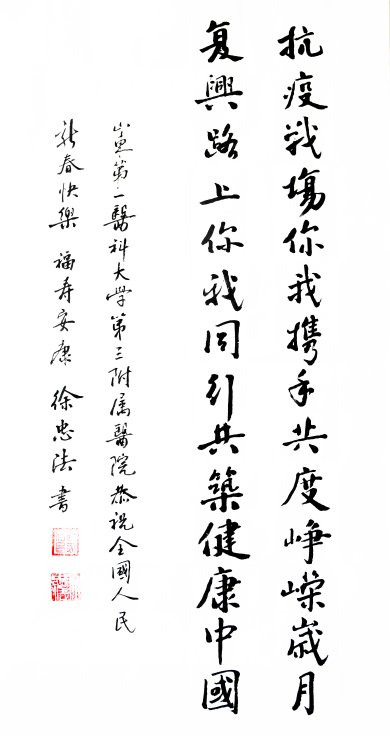 抗疫戰場你我携手共度崢嶸歲月
复興路上你我同行共築健康中國
山東第一醫科大学第三附属醫院恭祝全國人民
新春快樂 福寿安康 徐忠法 書